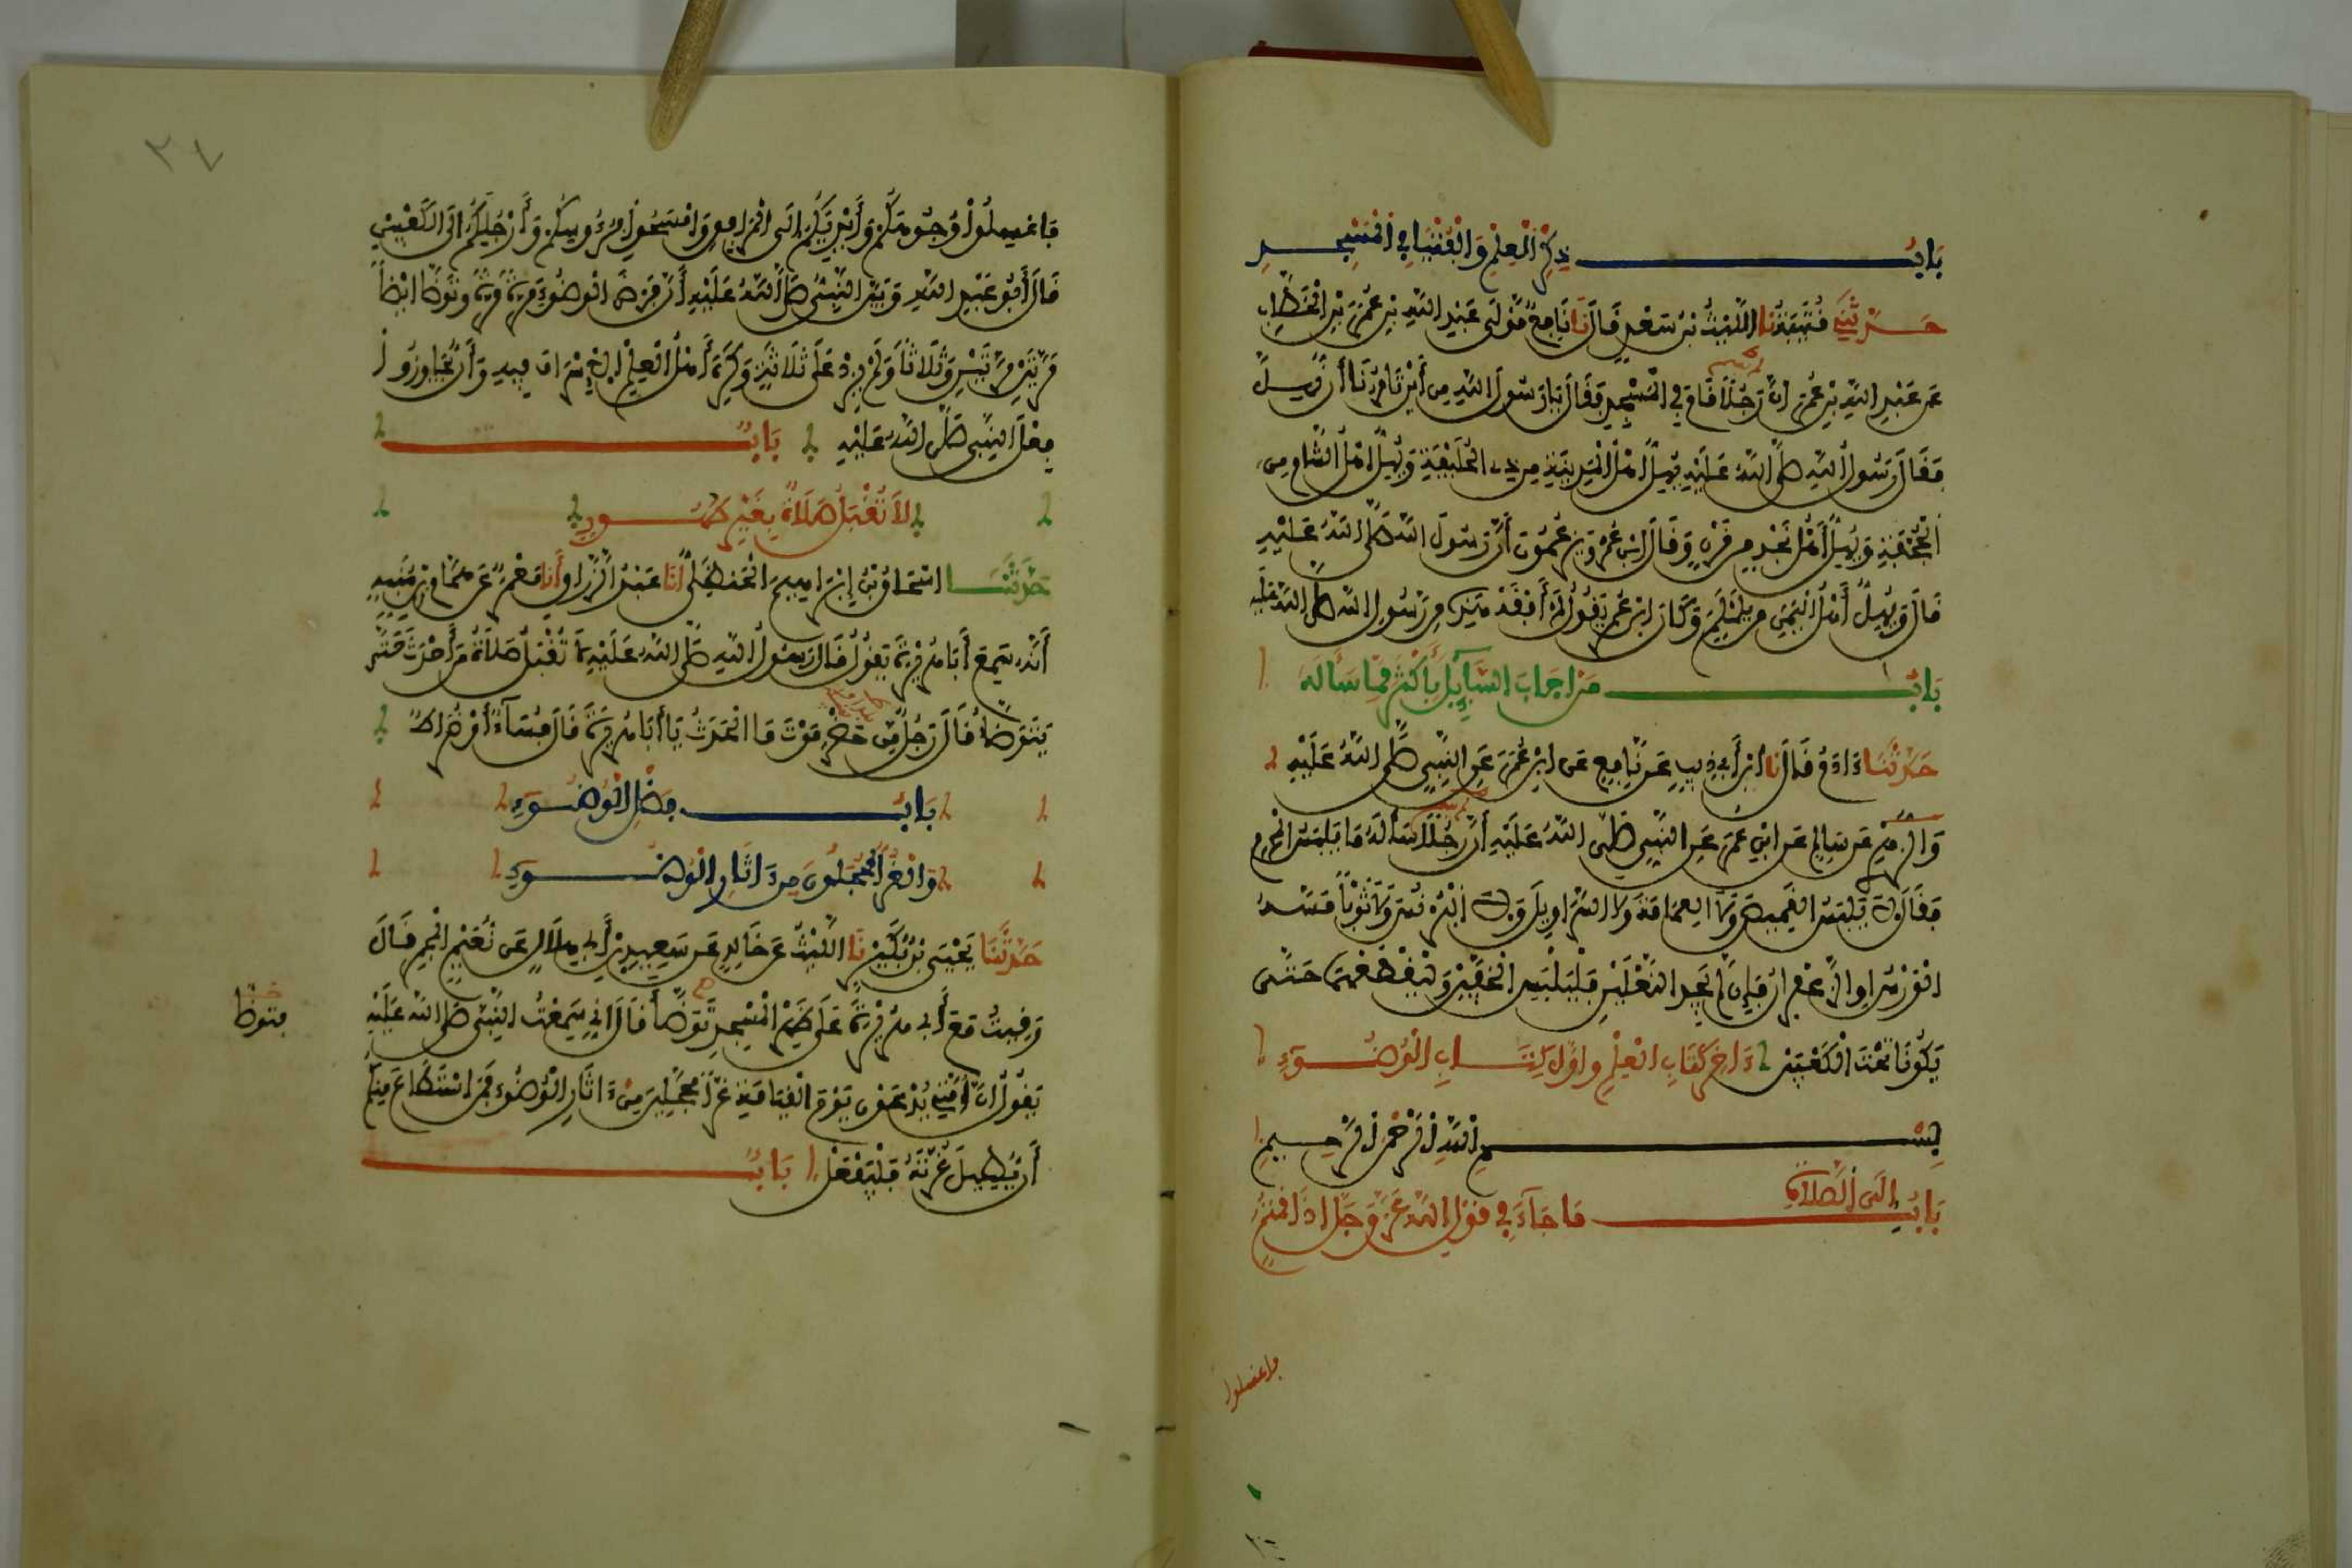 بَابُ ذِكْرِ الْعِلْمِ وَالْفُتْيَا فِي الْمَسْجِدِ
حَدَّثَنِي قُتَيْبَةُ نا اللَّيْثُ بْنُ سَعْدٍ قَالَ نَا نَافِعٌ مَّوْلَى عَبْدِ اللَّهِ بْنِ عُمَرَ بْنِ الْخَطَّابِ
عَن عَبْدِ اللَّهِ بْنِ عُمَرَ أَنَّ رَجُلًا قَامَ فِي الْمَسْجِدِ فَقَالَ يَا رَسُولَ اللَّهِ مِنْ أَيْنَ تَامُرُنَا أَن نُّهِلَّ
فَقَالَ رَسُولُ اللَّهِ صَلَّى اللَّهُ عَلَيْهِ يُهِلُّ أَهْلُ الْمَدِينَةِ مِن ذِي الْحُلَيْفَةِ وَيُهِلُّ أَهْلُ الشَّامِ مِنَ
الْجُحْفَةِ وَيُهِلُّ أَهْلُ نَجْدٍ مِن قَرْنٍ وَقَالَ ابْنُ عُمَرَ وَيَزْعُمُونَ أَنَّ رَسُولَ اللَّهِ صَلَّى اللَّهُ عَلَيْهِ
قَالَ وَيُهِلُّ أَهْلُ الْيَمَنِ مِن يَلَمْلَمَ وَكَانَ ابْنُ عُمَرَ يَقُولُ لَمْ أَفْقَهْ هَذِهِ مِن رَّسُولِ اللَّهِ صَلَّى اللَّهُ عَلَيْهِ
بَابُ مَنْ أَجَابَ السَّآئِلَ بِأَكْثَرَ مِمَّا سَأَلَهُ
حَدَّثَنَا ءَادَمُ قَالَ نَا ابْنُ أَبِي ذِيبٍ عَن نَّافِعٍ عَنِ ابْنِ عُمَرَ عَنِ النَّبِيِّ صَلَّى اللَّهُ عَلَيْهِ
وَالزُّهْرِيِّ عَن سَالِمٍ عَنِ ابْنِ عُمَرَ عَنِ النَّبِيِّ صَلَّى اللَّهُ عَلَيْهِ أَنَّ رَجُلًا سَأَلَهُ مَا يَلْبَسُ الْمُحْرِمُ
فَقَالَ لَا يَلْبَسُ الْقَمِيصَ وَلَا الْعِمَامَةَ وَلَا السَّرَاوِيلَ وَلَا الْبُرْنُسَ وَلَا ثَوْبًا مَسَّهُ
الْوَرْسُ أَوِ الزَّعْفَرَانُ فَإِن لَّمْ يَجِدِ النَّعْلَيْنِ فَلْيَلْبَسِ الْخُفَّيْنِ وَلْيَقْطَعْهُمَا حَتَّى
يَكُونَا تَحْتَ الْكَعْبَيْنِ ءَاخِرُ كِتَابِ الْعِلْمِ وأَوَّلُ كِتَابِ الْوُضُوءِ
بِسْمِ اللَّهِ الرَّحْمَنِ الرَّحِيمِ
إِلَى الصَّلَاةِ
بَابُ مَا جَآءَ فِي قَوْلِ اللَّهِ عَزَّ وَجَلَّ إِذَا قُمْتُمُ
فاغسلوا
٣٧
فَاغْسِلُوا وُجُوهَكُمْ وَأَيْدِيَكُمُ إِلَى الْمَرَافِقِ وَامْسَحُوا بِرُءُوسِكُمْ وَأَرْجُلَكُمُ إِلَى الْكَعْبَيْنِ
قَالَ أَبُو عَبْدِ اللَّهِ وَبَيَّنَ النَّبِيُّ صَلَّى اللَّهُ عَلَيْهِ أَنَّ فَرْضَ الْوُضُوءِ مَرَّةً مَرَّةً وَتَوَضَّأَ أَيْضًا
مَرَّتَيْنِ مَرَّتَيْنِ وَثَلَاثًا وَلَمْ يَزِدْ عَلَى ثَلَاثٍ وَكَرِهَ أَهْلُ الْعِلْمِ الْإِسْرَافَ فِيهِ وَأَن يُجَاوِزُوا
فِعْلَ النَّبِيِّ صَلَّى اللَّهُ عَلَيْهِ بَابُ
لَا تُقْبَلُ صَلَاةٌ بِغَيْرِ طُهُورٍ
حَدَّثَنَا إِسْحَاقُ بْنُ إِبْرَاهِيمَ الْحَنْظَلِيُّ أَنَا عَبْدُ الرَّزَّاقِ أَنَا مَعْمَرٌ عَن هَمَّامِ بْنِ مُنَبِّهٍ
أَنَّهُ سَمِعَ أَبَا هُرَيْرَةَ يَقُولُ قَالَ رَسُولُ اللَّهِ صَلَّى اللَّهُ عَلَيْهِ لَا تُقْبَلُ صَلَاةُ مَن أَحْدَثَ حَتَّى
يَتَوَضَّأَ قَالَ رَجُلٌ مِّنْ حَضْرَمَوْتَ مَا الْحَدَثُ يَا أَبَا هُرَيْرَةَ قَالَ فُسَآءٌ أَوْ ضُرَاطٌ
بَابُ فَضْلِ الْوُضُوءِ
وَالْغُرُّ الْمُحَجَّلُونَ مِنْ ءَاثَارِ الْوُضُوءِ
حَدَّثَنَا يَحْيَى بْنُ بُكَيْرٍ نَا اللَّيْثُ عَن خَالِدٍ عَن سَعِيدِ بْنِ أَبِي هِلَالٍ عَن نُّعَيْمٍ الْمُجْمِرِ قَالَ
رَقِيتُ مَعَ أَبِي هُرَيْرَةَ عَلَى ظَهْرِ الْمَسْجِدِ تَوَضَّأَ قَالَ إِنِّي سَمِعْتُ النَّبِيَّ صَلَّى اللَّهُ عَلَيْهِ
فتوضأ
يَقُولُ إِنَّ أُمَّتِي يُدْعَوْنَ يَوْمَ الْقِيَامَةِ غُرًّا مُحَجَّلِينَ مِنْ ءَاثَارِ الْوُضُوءِ فَمَنِ اسْتَطَاعَ مِنكُمُ
أَن يُطِيلَ غُرَّتَهُ فَلْيَفْعَلْ بَابُ